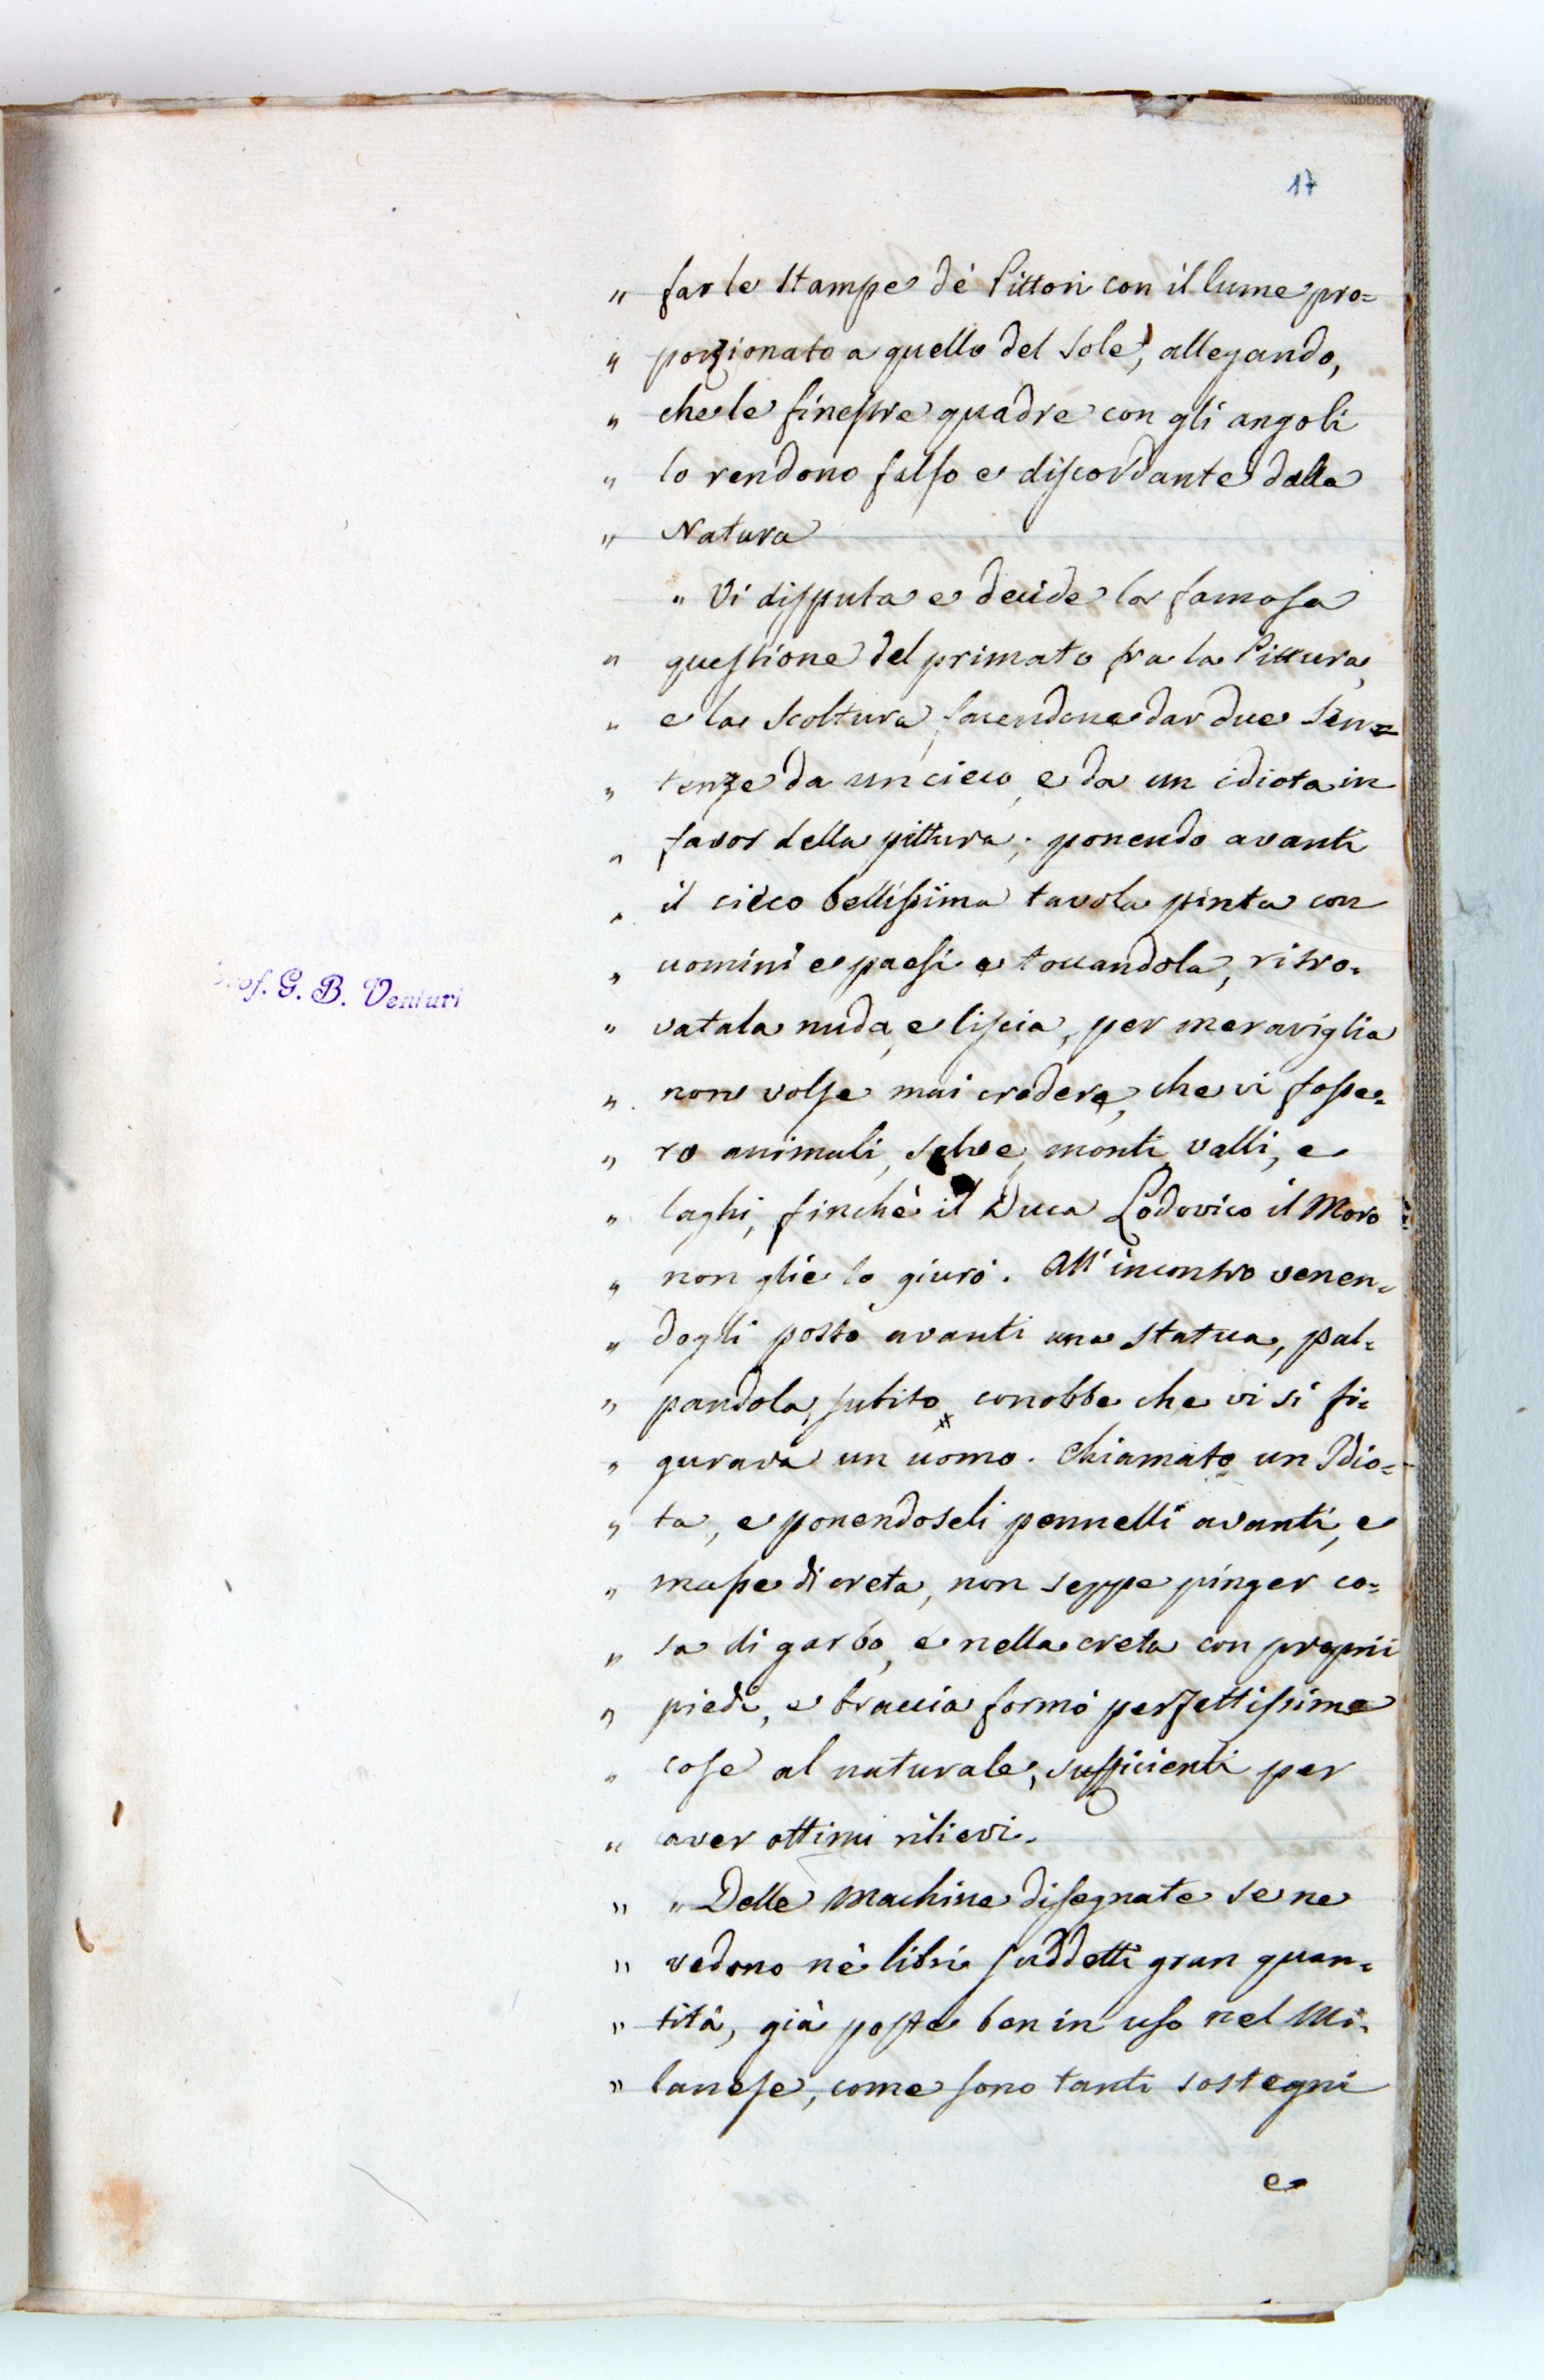 17
" far le stampe dè Pittori con il lume pro=
" porzionato a quello del sole, allegando,
" che le finestre quadre con gli angoli
" lo rendono falso e discordante dalla
" Natura
" Vi disputa e decide la famosa
" questione del primato fra la Pittura,
" e la Scoltura, facendone dar due Sen=
" tenze da un cieco, e da un idiota in
" favor della pittura; ponendo avanti
" il cieco bellissima tavola pinta con
" uomini e paesi e toccandola, ritro=
" vatala nuda, e liscia, per meraviglia
" non volse mai credere, che vi fosse=
" ro animali, selve, monti, valli, e
" laghi, finchè il Duca Lodovico il Moro
" non glie lo giurò. All'incontro venen=
" dogli posto avanti una statua, pal=
" pandola, subito conobbe che vi si fi=
" gurava un uomo. Chiamato un Idio=
" ta, e ponendoseli pennelli avanti, e
" masse di creta, non seppe pinger co=
" sa di garbo, e nella creta con proprii
" piedi, e braccia formò perfettissime
" cose al naturale, sufficienti per
" aver ottimi rilievi.
" " Delle Machine disegnate se ne
" vedono nè libri suddetti gran quan=
" tità, già poste ben in uso nel Mi=
" lanese, come sono tanti sostegni
e
Prof. G. B. Venturi